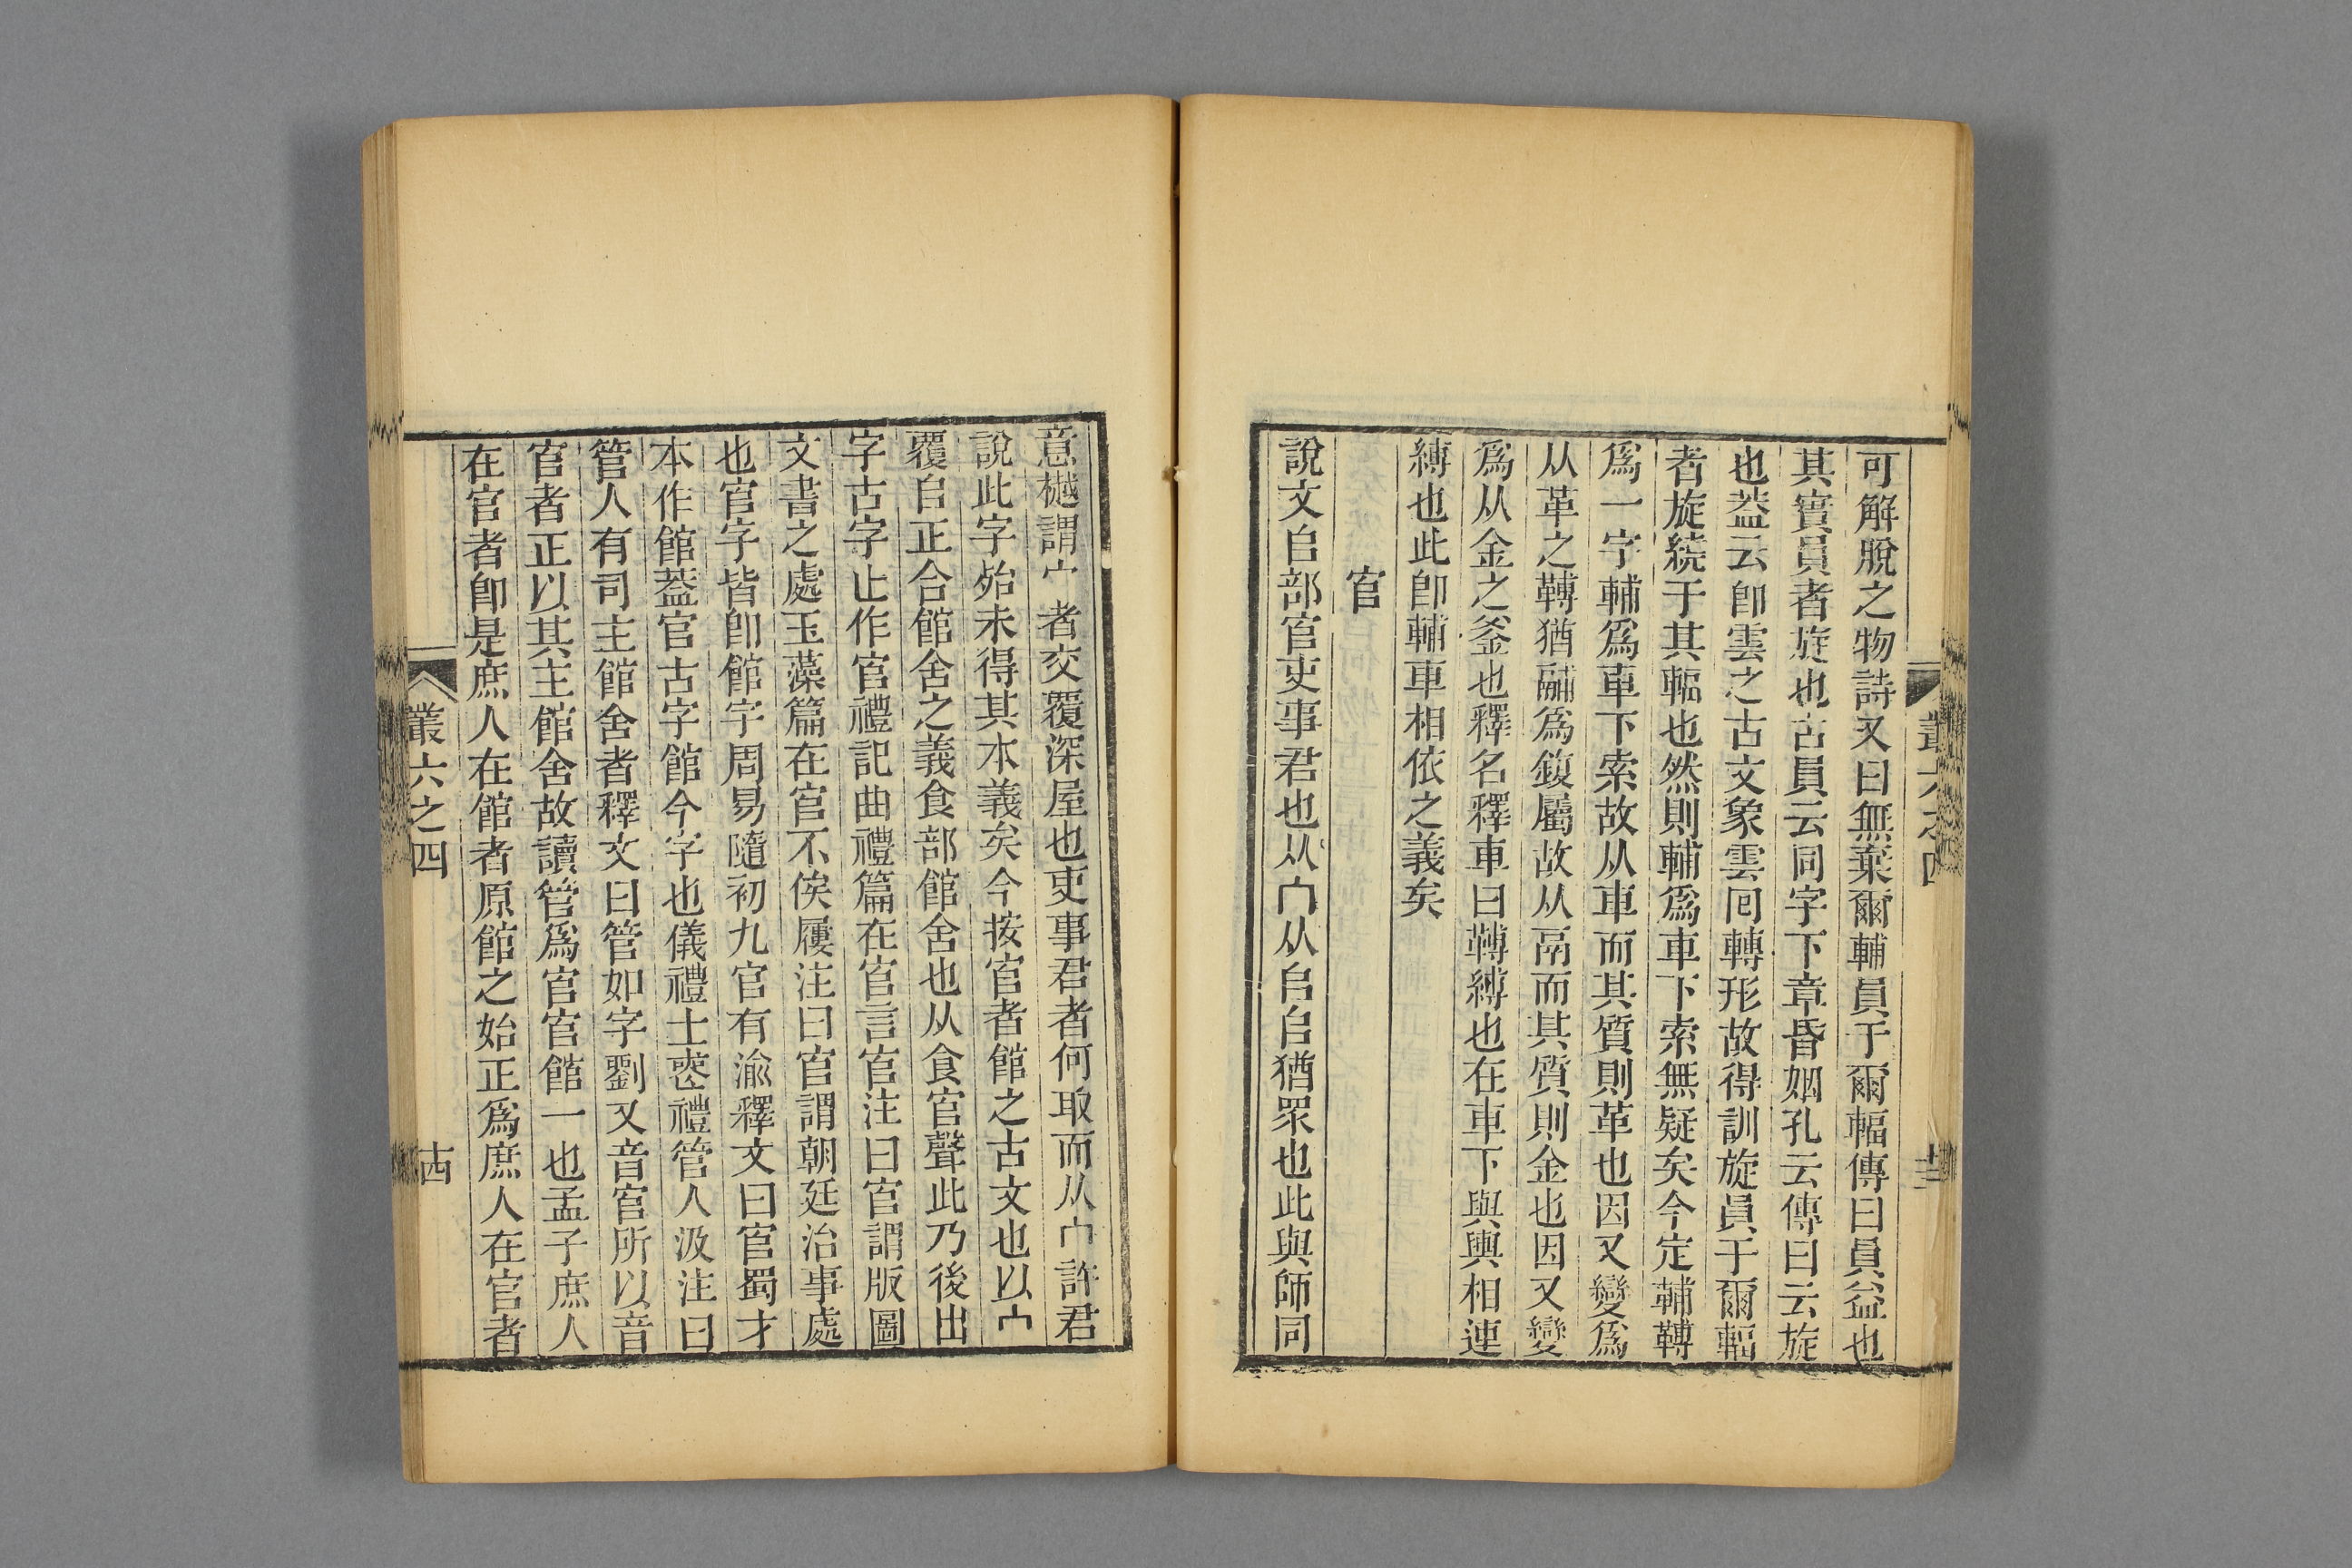 可解脫之物詩又曰無棄爾輔員于爾輻傳曰員益也
其實員者旋也古員云同字下章昏姻孔云傳曰云旋
也葢云卽雲之古文象雲囘轉形故得訓旋員于爾輻
者旋繞于其輻也然則輔爲車下索無疑矣今定輔䩛
爲一字輔爲車下索故从車而其質則革也因又變爲
从革之䩛猶鬴爲鍑屬故从鬲而其質則金也因又變
爲从金之釜也釋名釋車曰䩛縛也在車下與輿相連
縛也此卽輔車相依之義矣
官
說文𠂤部官吏事君也从宀从𠂤𠂤猶眾也此與師同
叢六之四
意樾謂宀者交覆深屋也吏事君者何取而从宀許君
說此字殆未得其本義矣今按官者館之古文也以宀
覆𠂤正合館舍之義食部館舍也从食官聲此乃後出
字古字止作官禮記曲禮篇在官言官注曰官謂版圖
文書之處玉藻篇在官不俟屨注曰官謂朝廷治事處
也官字皆卽館字周易隨初九官有渝釋文曰官蜀才
本作館葢官古字館今字也儀禮士喪禮管人汲注曰
管人有司主館舍者釋文曰管如字劉又音官所以音
官者正以其主館舍故讀管爲官官館一也孟子庶人
在官者卽是庶人在館者原館之始正爲庶人在官者
叢六之四
古